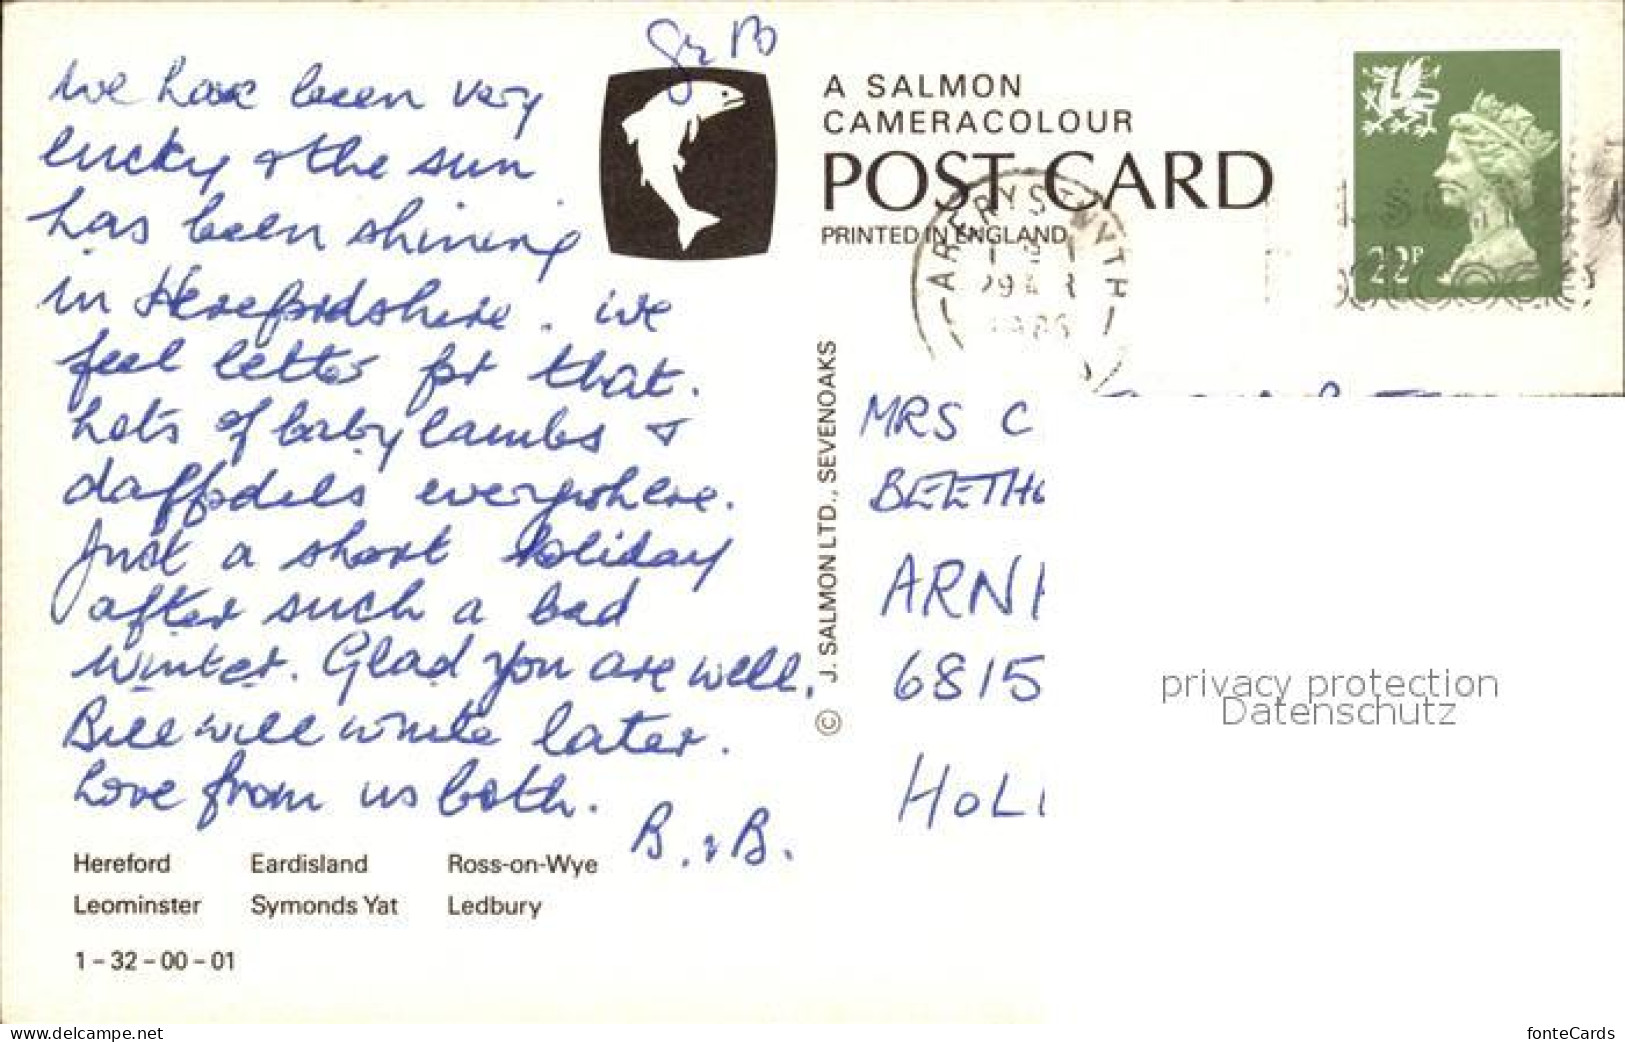 Gr B
We have been very
lucky & the sun
has been shining
in Herefordshire. We
feel better for that.
Lots of baby lambs &
daffodils everywhere.
Just a short holiday
after such a bad
winter. Glad you are well.
Bill will write later.
Love from us both.
B. & B.
Hereford Eardisland Ross-on-Wye
Leominster Symonds Yat Ledbury
1-32-00-01
A SALMON
CAMERACOLOUR
POST CARD
PRINTED IN ENGLAND
© J. SALMON LTD., SEVENOAKS
22P
MRS C
BEETHO
ARN
6815
HOLL
privacy protection
Datenschutz
www.delcampe.net
fonteCards